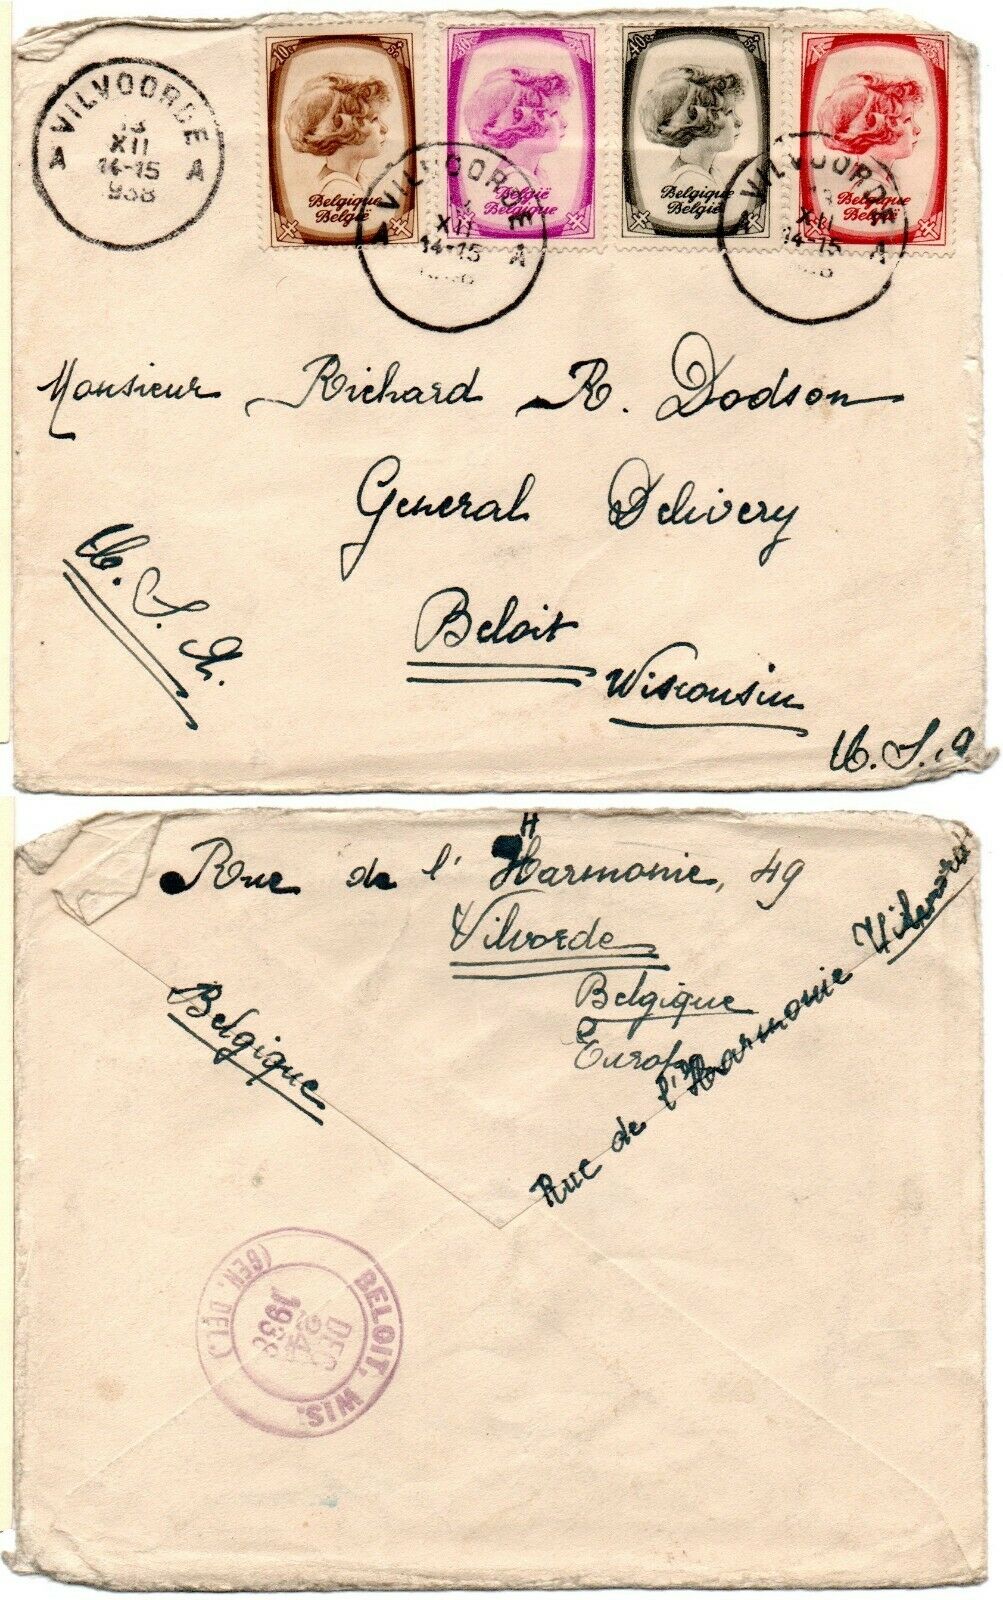 VILVOORDE
13
XII
14-15
938
A A
10c 5c
Belgique
België
België
Belgique
40c
Belgique
België
Belgique
België
VILVOORDE
XII
14-15
A A
VILVOORDE
13
XII
14-15
A A
Monsieur Richard R. Dodson
General Delivery
Beloit
Wisconsin
U.S.A.
U.S.A
Rue de l'Harmonie, 49
H
Vilvorde
Belgique
Europe
Belgique
Rue de l'Harmonie Vilvorde
BELOIT, WIS.
DEC
24
1938
(GEN. DEL.)